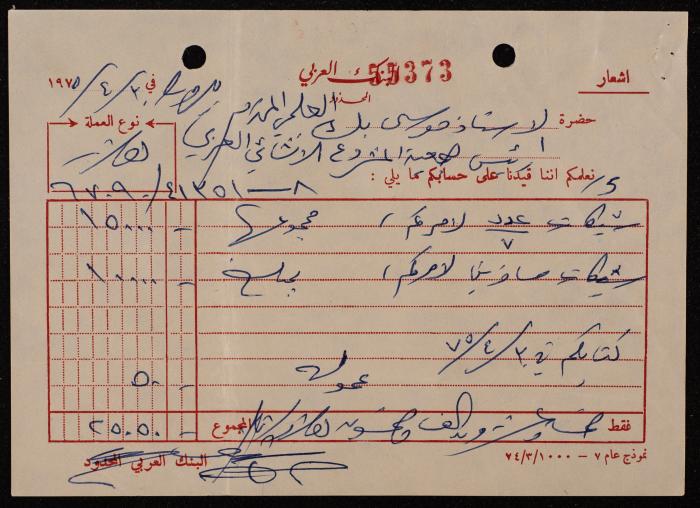 البنك العربي
55373
اشعار
بيروت في ٣٠/٤/١٩٧٥
حضرة الاستاذ موسى بك العلمي المحترم
رئيس جمعية المشروع الانشائي العربي
نوع العملة
نعلمكم اننا قيدنا على حسابكم بما يلي :
شيكات عدد ٧ لامركم، مجموعها ١٥٠٠٠ -
شيكات مسافرين لامركم، بمبلغ ١٠٠٠٠ -
كتابكم في ٣٠/٤/٧٥
عمولة ٥٠ -
فقط خمسة وعشرون الف وخمسون المجموع ٢٥٠٥٠ -
البنك العربي المحدود
نموذج عام ٧ - ٧٤/٣/١٠٠٠